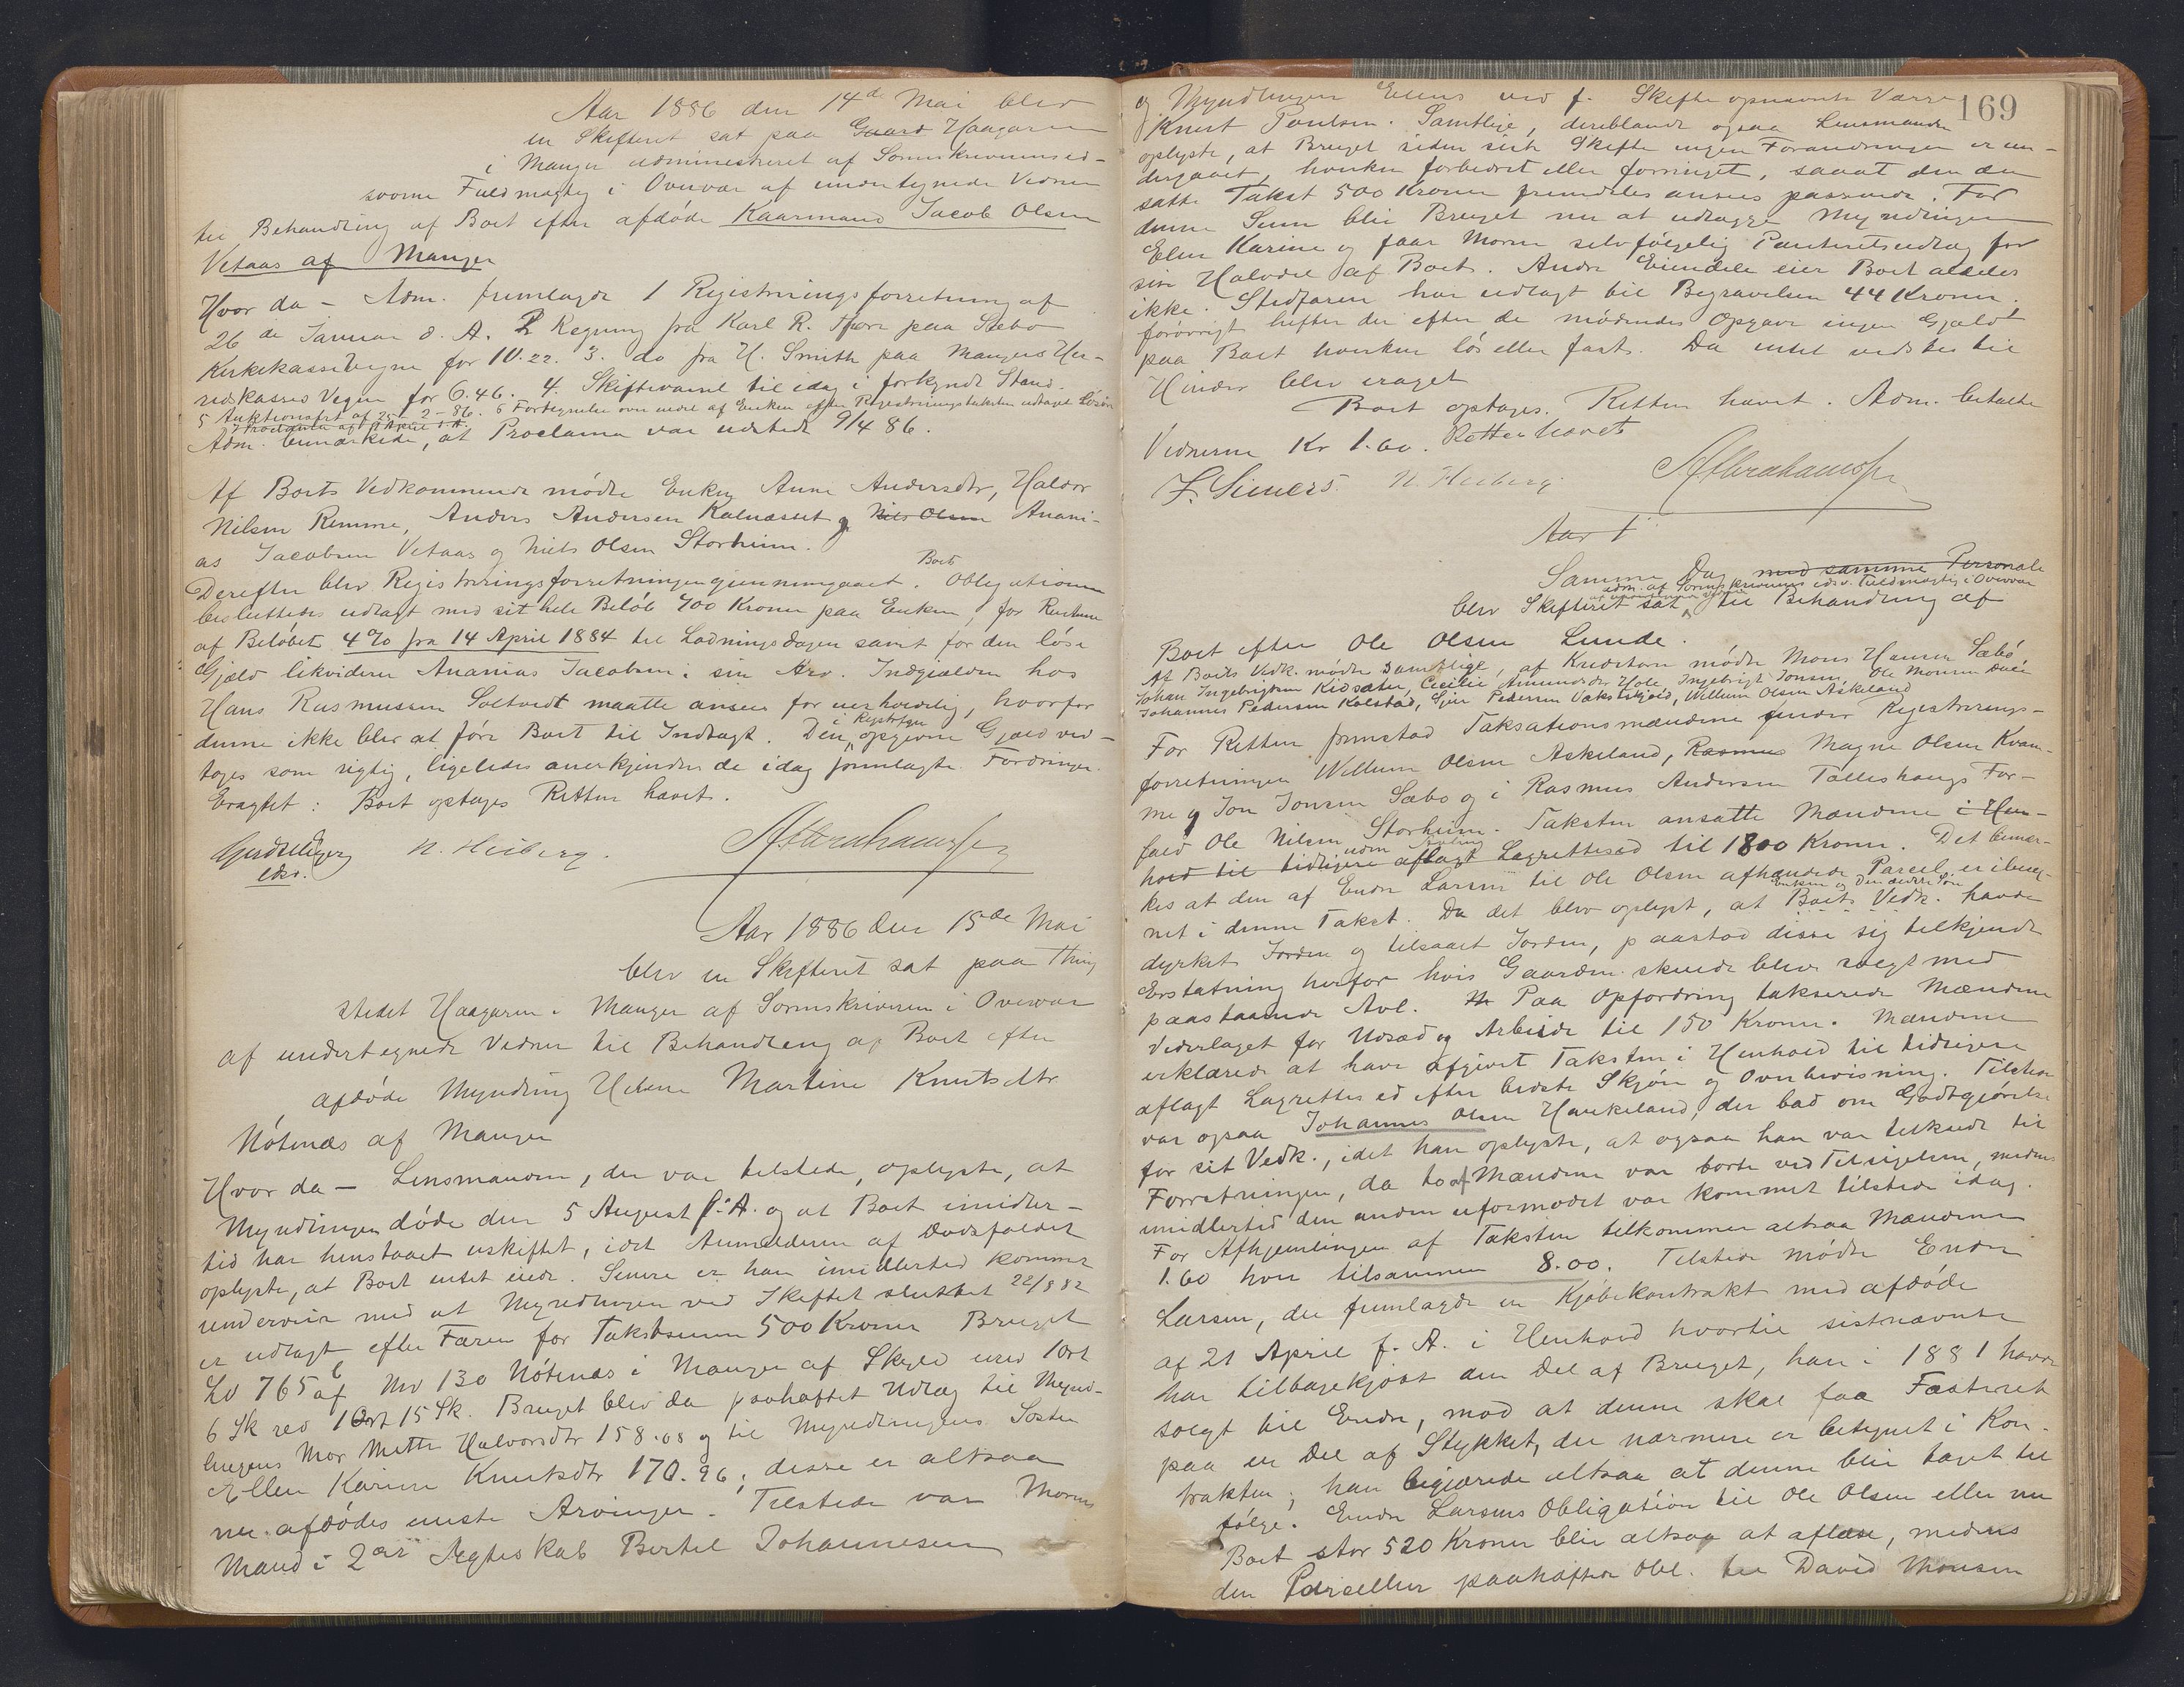 Aar 1886 den 14de Mai blev
en Skifteret sat paa Gaard Haagaren
i Manger administreret af Sorenskriverens ed-
svorne Fuldmægtig i Overvær af undertegnede Vidner
til Behandling af Boet efter afdøde Kaarmand Jacob Olsen
Vetaas af Manger
Hvor da – Adm. fremlagde 1 Registreringsforretning af
26de Januar d. A. 2 Regning fra Karl R. paa Sæbø
Kirkekasses Vegne for 10.22. 3. do fra H. Smith paa Mangers Her-
redskasses Vegne for 6.46. 4. Skiftevarsel til idag i forkyndt Stand.
5 Auktionsfrt af 25-2-86. 6 Fortegnelse over endel af Enken efter Registreringstaksten udtaget Løsøre
7 Proclama af 9 April d.A.
Adm. bemærkede, at Proclama var udstedt 9/4 86.
Af Boets Vedkommende mødte Enken Anne Andersdtr, Haldor
Nilsen Remme, Anders Andersen Kalnæsset og Nils Olsen Anani-
as Jacobsen Vetaas og Niels Olsen Storheim.
Derefter blev Registreringsforretningen gjennemgaaet. Boets Obligationen
besluttedes udlagt med sit hele Beløb 400 Kroner paa Enken, for Renterne
af Beløbet 4% fra 14 April 1884 til Ladningsdagen samt for den løse
Gjæld likviderer Ananias Jacobsen i sin Arv. Indgjælden hos
Hans Rasmussen Soltvedt maatte ansees for uerholdelig, hvorfor
denne ikke blev at føre Boet til Indtægt. Den i Registrfrn opgivne Gjæld ved-
toges som rigtig, ligeledes anerkjendtes de idag fremlagte Fordringer.
Eragtet: Boet optages Retten hævet.
N. Heiberg. AAbrahamsen
Aar 1886 den 15de Mai
blev en Skifteret sat paa Thing
stedet Haagaren i Manger af Sorenskriveren i Overvær
af undertegnede Vidner til Behandling af Boet efter
afdøde Myndling Helene Martine Knutsdtr
Nøtenæs af Manger
Hvor da – Lensmanden, der var tilstede, oplyste, at
Myndlingen døde den 5 August f. A. og at Boet imidler-
tid har henstaaet uskiftet, idet Anmelderen af Dødsfaldet
oplyste, at Boet intet eiede. Senere er han imidlertid kommet
underveir med at Myndlingen ved Skiftet sluttet 22/8 82
er udlagt efter Faren for Takstsum 500 Kroner Bruget
Lb 765 af Mno 130 Nøtenæs i Manger af Skyld urev 1 Ort
6 Sk rev 1 Ort 15 Sk. Bruget blev da paaheftet Udlæg til Mynd-
lingens Mor Mette Halvorsdtr 158.08 og til Myndlingens Søster
Ellen Karine Knutsdtr 170.96; disse er altsaa
nu afdødes eneste Arvinger. Tilstede var Morens
Mand i 2det Ægteskab Bertel Johannesen
169
og Myndlingen Elens ved f. Skifte opnævnte Værge
Knut Poulsen. Samtlige, deriblandt ogsaa Lensmanden
oplyste, at Bruget siden sidste Skifte ingen Forandringer er un-
dergaaet, hverken forbedret eller forringet, saaat den da
satte Takst 500 Kroner fremdeles ansees passende. For
denne Sum blir Bruget nu at udlægge Myndlingen
Elen Karine og faar Moren selvfølgelig Panteretsudlæg for
sin Halvdel af Boet. Andre Eiendele eier Boet aldeles
ikke. Stedfaren har udlagt til Begravelsen 44 Kroner.
forøvrigt hefter der efter de mødendes Opgave ingen Gjæld
paa Boet hverken løs eller fast. Da intet vidstes til
Hinder blev eragtet
Boet optages. Retten hævet. Adm. betalte
Vidnerne Kr 1.60. Retten hævet
F. Siemers. N. Heiberg. AAbrahamsen
Aar 1
Samme Dag med samme Personale
adm. af Sorenskriverens edsv. Fuldmægtig i Overvær
af undertegnede Vidner
blev Skifteret sat til Behandling af
Boet efter Ole Olsen Lunde.
Af Boets Vedk. mødte Samtlige, af Kreditorer mødte Mons Hansen Sæbø
Johan Ingebrigtsen Kidsæter, Cecilie Amundsdtr Hole, Ingebrigt Jonsen, Ole Monsen
Johannes Pedersen Kolstad, Sjur Pedersen Vakerskjold, Willum Olsen Askeland
For Retten fremstod Taksationsmændene under Registrerings-
forretningen Willum Olsen Askeland, Rasmus Magne Olsen Kvam-
me og Jon Jonsen Sæbø og i Rasmus Andersen Talleshaugs For-
fald Ole Nilsen Storheim. Taksten ansatte Mændene i Hen-
hold til tidligere aflagt Lagrettesed til 1800 Kroner. Det bemær-
kes at den af Endre Larsen til Ole Olsen afhændede Parcel er ibereg-
net i denne Takst. Da det blev oplyst, at Boets Vedk. Enken og Den ældste Søn havde
dyrket Jorden og tilsaaet Jorden, paastod disse sig tilkjendt
Erstatning herfor hvis Gaarden skulde blive solgt med
paastaaende Avl. Paa Opfordring takserede Mændene
Vederlaget for Udsæd og Arbeide til 150 Kroner. Mændene
erklærede at have afgivet Taksten i Henhold til tidligere
aflagt Lagrettesed efter bedste Skjøn og Overbevisning. Tilstede
var ogsaa Johannes Olsen Haukeland, der bad om Godtgjørelse
for sit Vedk., idet han oplyste, at ogsaa han var tilkaldt til
Forretningen, da to af Mændene var borte ved Tilsigelsen, medens
imidlertid den anden uformodet var kommet tilstede idag.
For Afhjemlingen af Taksten tilkommer altsaa Mændene
1.60 hver tilsammen 8.00. Tilstede mødte Endre
Larsen, der fremlagde en Kjøbekontrakt med afdøde
af 21 April f. A. i Henhold hvortil sistnævnte
har tilbagekjøbt den Del af Bruget, han i 1881 havde
solgt til Endre, mod at denne skal faa Fæsteret
paa en Del af Stykket, der nærmere er betegnet i Kon-
trakten; han begjærede altsaa at denne blir taget til
følge. Endre Larsens Obligation til Ole Olsen eller nu
Boet stor 520 Kroner blir altsaa at aflæse, medens
den Parcellen paaheftede Obl. til David Monsen